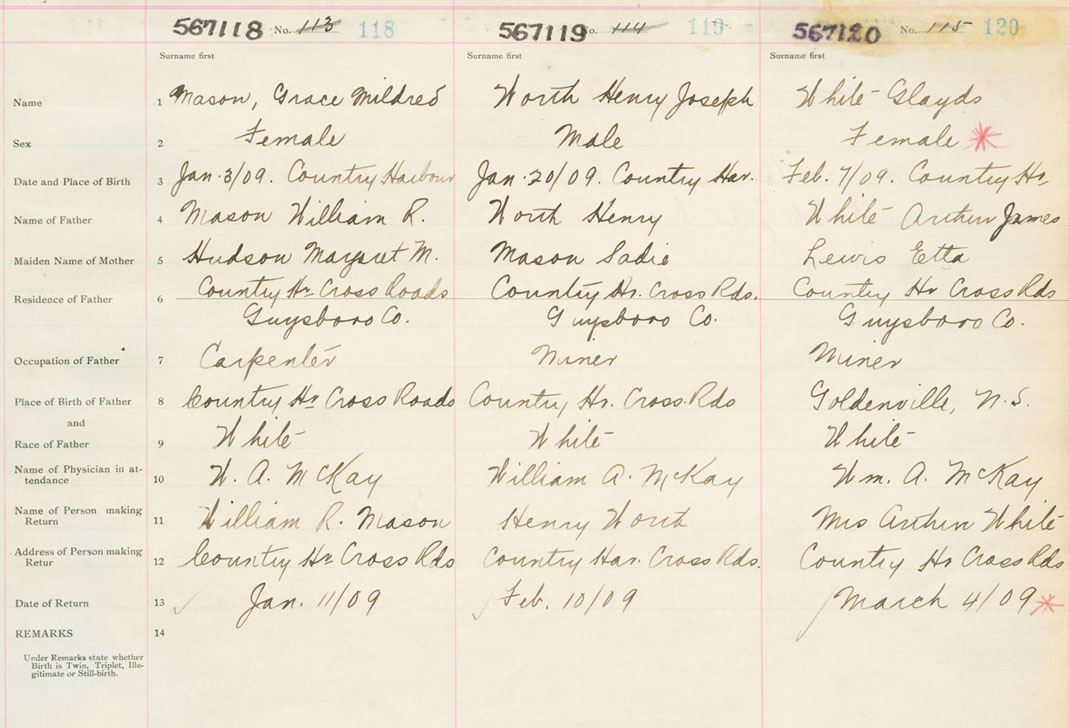 567118 No. 113 118 567119 No. 114 119 567120 No. 115 120
Surname first Surname first Surname first
Name 1 Mason, Grace Mildred Worth Henry Joseph White Glayds
Sex 2 Female Male Female *
Date and Place of Birth 3 Jan. 3/09. Country Harbour Jan. 20/09. Country Har. Feb. 7/09. Country Hr.
Name of Father 4 Mason William R. Worth Henry White Arthur James
Maiden Name of Mother 5 Hudson Margaret M. Mason Sadie Lewis Etta
Residence of Father 6 Country Hr Cross Roads Country Hr. Cross Rds. Country Hr Cross Rds
Guysboro Co. Guysboro Co. Guysboro Co.
Occupation of Father 7 Carpenter Miner Miner
Place of Birth of Father 8 Country Hr Cross Roads Country Hr. Cross Rds Goldenville, N.S.
and
Race of Father 9 White White White
Name of Physician in at-
tendance 10 W. A. McKay William A. McKay Wm. A. McKay
Name of Person making
Return 11 William R. Mason Henry Worth Mrs Arthur White
Address of Person making
Retur 12 Country Hr Cross Rds Country Har. Cross Rds. Country Hr Cross Rds
Date of Return 13 Jan. 11/09 Feb. 10/09 March 4/09 *
REMARKS 14
Under Remarks state whether
Birth is Twin, Triplet, Ille-
gitimate or Still-birth.